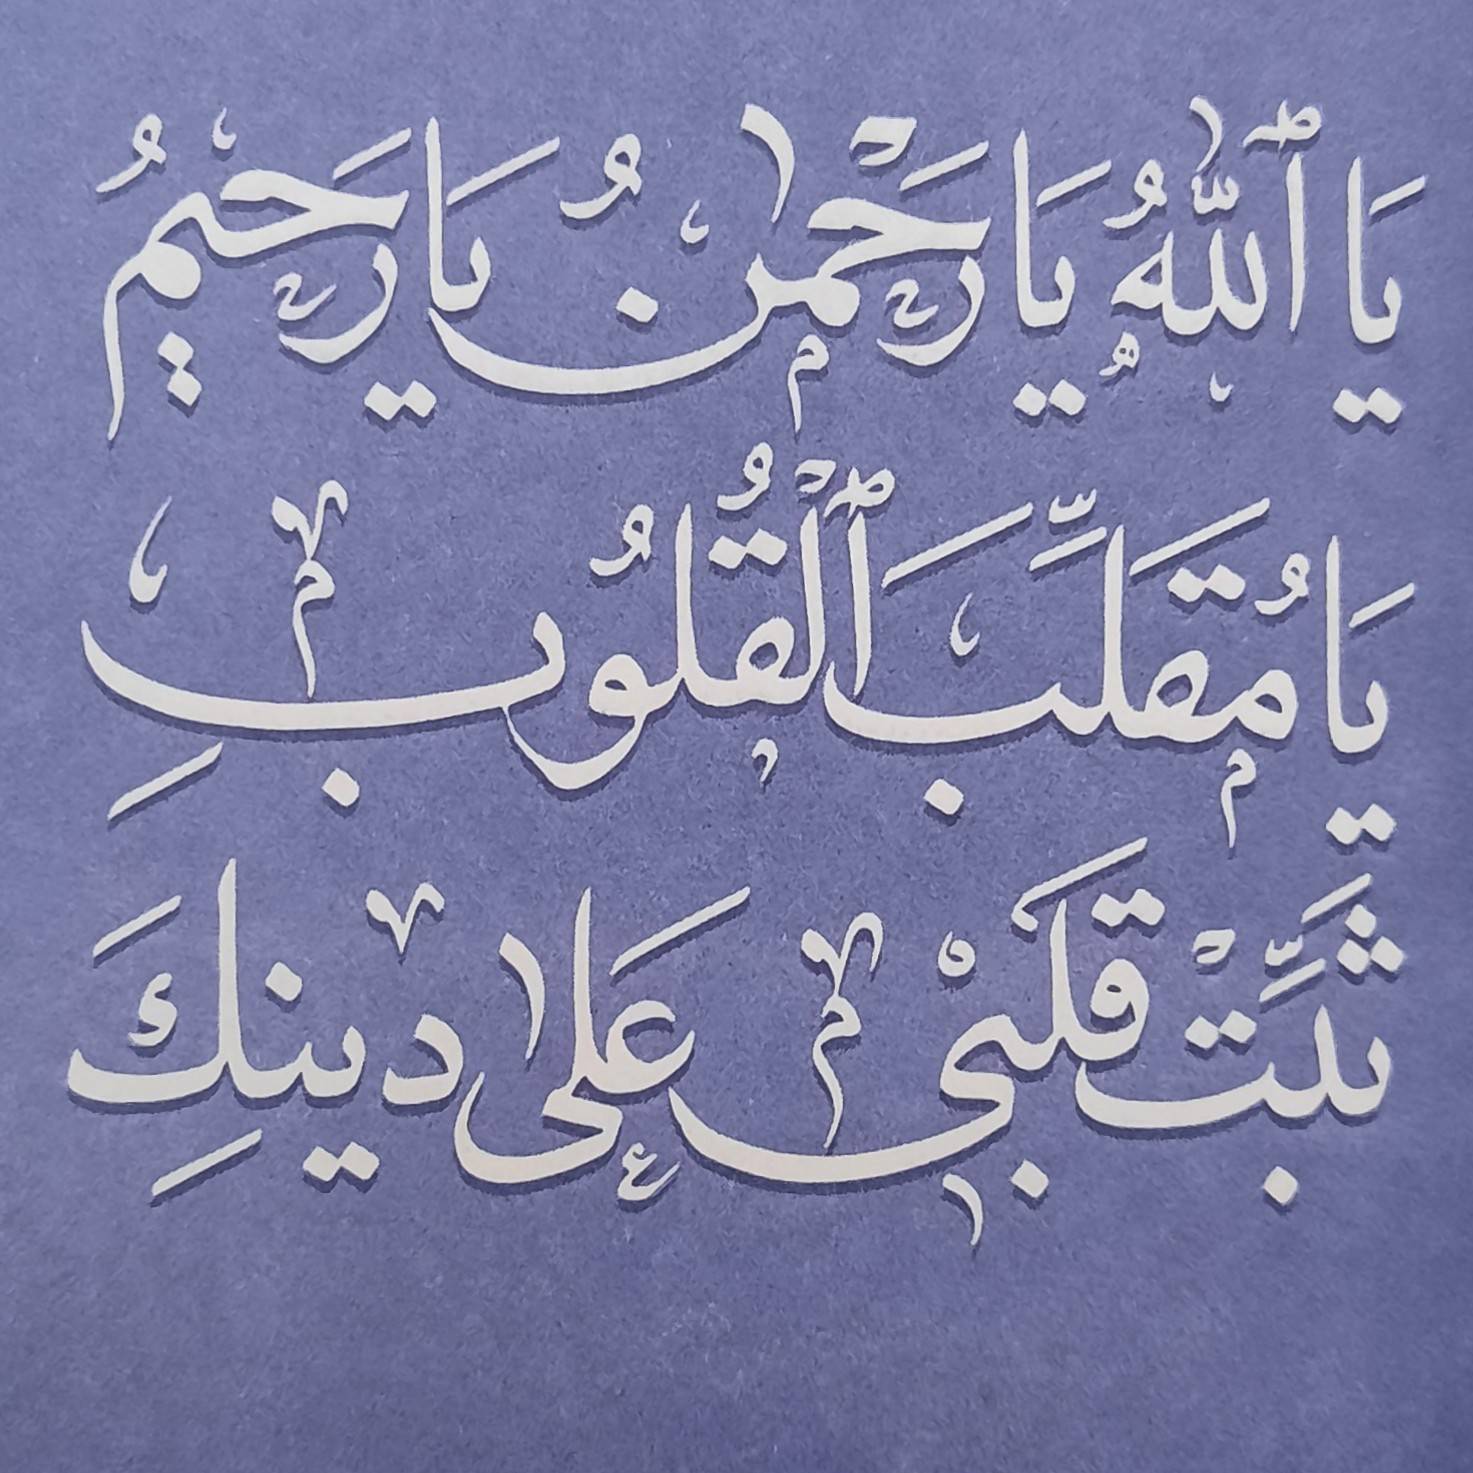 يَا ٱللّٰهُ يَا رَحْمٰنُ يَا رَحِيمُ
يَا مُقَلِّبَ ٱلْقُلُوبِ
ثَبِّتْ قَلْبِي عَلَى دِينِكَ